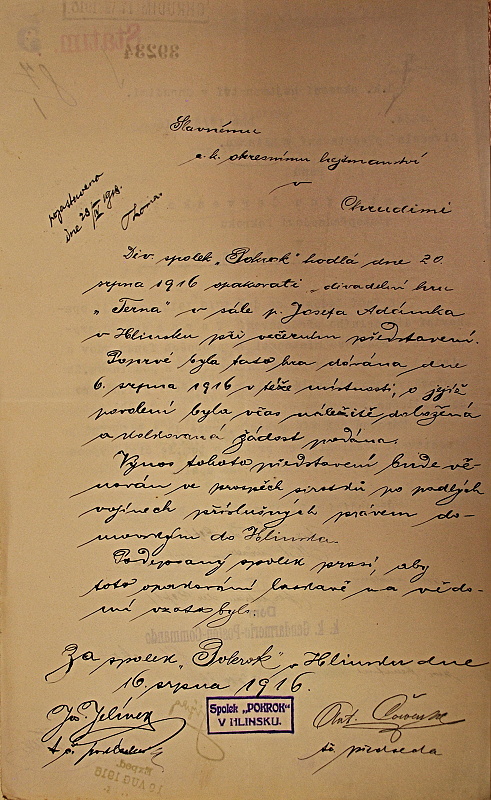 39234
Slavnému
c.k. okresnímu hejtmanství
v
Chrudimi
pozastaveno
dne
Div. spolek „Pokrok" hodlá dne 20.
srpna 1916 opakovati divadelní hru
„Terna" v sále p. Josefa Adámka
v Hlinsku při večerním představení.
Poprvé byla tato hra dávána dne
6. srpna 1916 v téže místnosti, o jejíž
povolení byla včas náležitě doložená
a kolkovaná žádost podána.
Výnos tohoto představení bude vě-
nován ve prospěch sirotků po padlých
vojínech příslušných právem do-
movským do Hlinska.
Podepsaný spolek prosí, aby
toto opakování laskavě na vědo-
mí vzato bylo.
Za spolek „Pokrok" v Hlinsku dne
16. srpna 1916.
Jos. Jelínek
Spolek „POKROK"
V HLINSKU.
Ant.
t.č. předseda